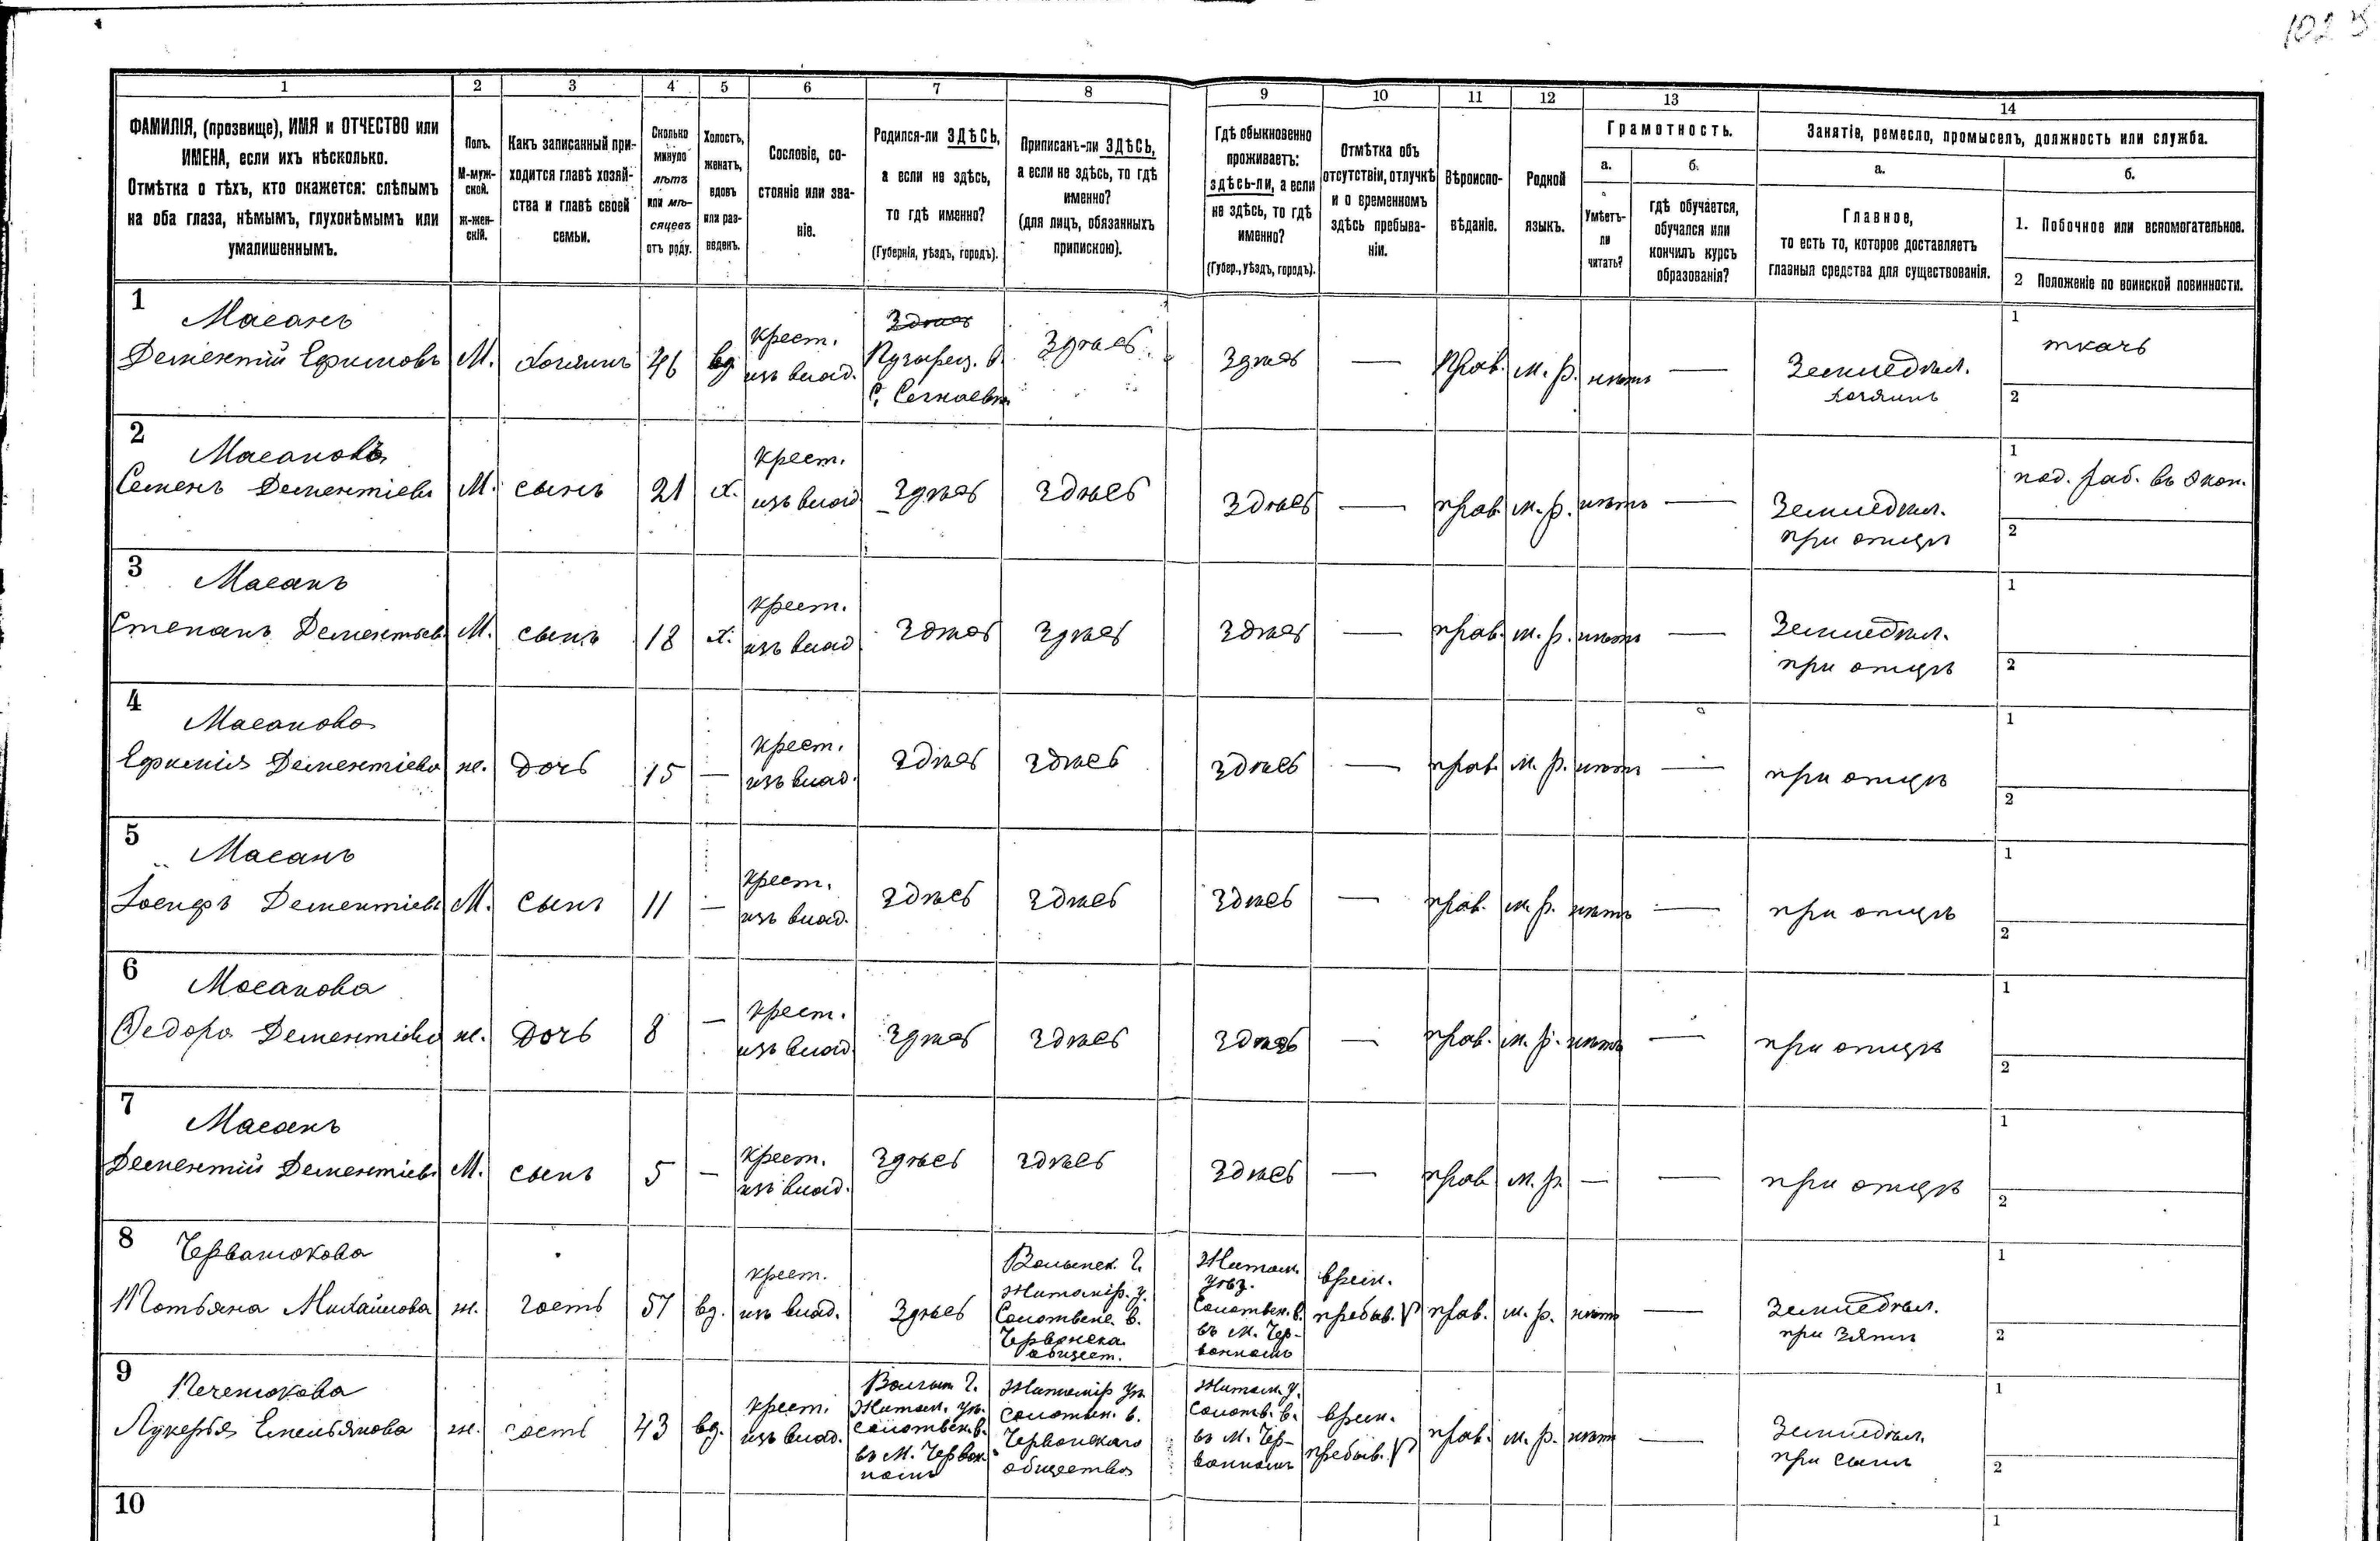 102
1 2 3 4 5 6 7 8 9 10 11 12 13 14
ФАМИЛІЯ, (прозвище), ИМЯ и ОТЧЕСТВО или
ИМЕНА, если ихъ нѣсколько.
Отмѣтка о тѣхъ, кто окажется: слѣпымъ
на оба глаза, нѣмымъ, глухонѣмымъ или
умалишеннымъ.
Полъ.
М-муж-
ской.
ж-жен-
скій.
Какъ записанный при-
ходится главѣ хозяй-
ства и главѣ своей
семьи.
Сколько
минуло
лѣтъ
или мѣ-
сяцевъ
отъ роду.
Холостъ,
женатъ,
вдовъ
или раз-
веденъ.
Сословіе, со-
стояніе или зва-
ніе.
Родился-ли ЗДѢСЬ,
а если не здѣсь,
то гдѣ именно?
(Губернія, уѣздъ, городъ).
Приписанъ-ли ЗДѢСЬ,
а если не здѣсь, то гдѣ
именно?
(для лицъ, обязанныхъ
припискою).
Гдѣ обыкновенно
проживаетъ:
здѣсь-ли, а если
не здѣсь, то гдѣ
именно?
(Губер., уѣздъ, городъ).
Отмѣтка объ
отсутствіи, отлучкѣ
и о временномъ
здѣсь пребыва-
ніи.
Вѣроиспо-
вѣданіе.
Родной
языкъ.
Грамотность.
а.
Умѣетъ-
ли
читать?
б.
гдѣ обучается,
обучался или
кончилъ курсъ
образованія?
Занятіе, ремесло, промыселъ, должность или служба.
а.
Главное,
то есть то, которое доставляетъ
главныя средства для существованія.
б.
1. Побочное или вспомогательное.
2 Положеніе по воинской повинности.
1
Масанъ
Дементій Ефимовъ
М.
хозяинъ
46
вд
крест.
изъ влад.
Здѣсь
Пузырец. в.
С.
Здѣсь
Здѣсь
—
Прав.
м. р.
нѣтъ
—
Земледѣл.
хозяинъ
1
ткачъ
2
2
Масановъ
Семенъ Дементіевъ
М.
сынъ
21
х.
крест.
изъ влад
Здѣсь
Здѣсь
Здѣсь
—
прав.
м. р.
нѣтъ
—
Земледѣл.
при отцѣ
1
под. раб. въ экон.
2
3
Масанъ
Степанъ Дементьев.
М.
сынъ
18
х.
крест.
изъ влад
Здѣсь
Здѣсь
Здѣсь
—
прав.
м. р.
нѣтъ
—
Земледѣл.
при отцѣ
1
2
4
Масанова
Ефимія Дементіева
ж.
дочь
15
—
крест.
изъ влад.
Здѣсь
Здѣсь
Здѣсь
—
прав.
м. р.
нѣтъ
—
при отцѣ
1
2
5
Масанъ
Іосифъ Дементіевъ
М.
сынъ
11
—
крест.
изъ влад.
Здѣсь
Здѣсь
Здѣсь
—
прав.
м. р.
нѣтъ
—
при отцѣ
1
2
6
Масанова
Федора Дементіева
ж.
дочь
8
—
крест.
изъ влад
Здѣсь
Здѣсь
Здѣсь
—
прав.
м. р.
нѣтъ
—
при отцѣ
1
2
7
Масанъ
Дементій Дементіевъ
М.
сынъ
5
—
крест.
изъ влад.
Здѣсь
Здѣсь
Здѣсь
—
прав
м. р.
—
—
при отцѣ
1
2
8
Черватюкова
Татьяна Михайлова
ж.
гость
57
вд.
крест.
изъ влад.
Здѣсь
Волынск. г.
Житомір. у.
Солотвенс. в.
Червонска
общест.
Житом.
уѣз.
Солотвен. в.
въ М. Чер-
вонномъ
врем.
пребыв. V
прав.
м. р.
нѣтъ
—
земледѣл.
при зятѣ
1
2
9
Печенюкова
Лукерья Емельянова
ж.
гость
43
вд.
крест.
изъ влад.
Волын. г.
Житом. уѣ.
Солотвен. в.
въ М. Червон-
номъ
Житомір уѣ.
Солотвен. в.
Червонскаго
общества
Житом. у.
Солотв. в.
въ М. Чер-
вонномъ
врем.
пребыв. V
прав.
м. р.
нѣтъ
—
Земледѣл.
при сынѣ
1
2
10
1